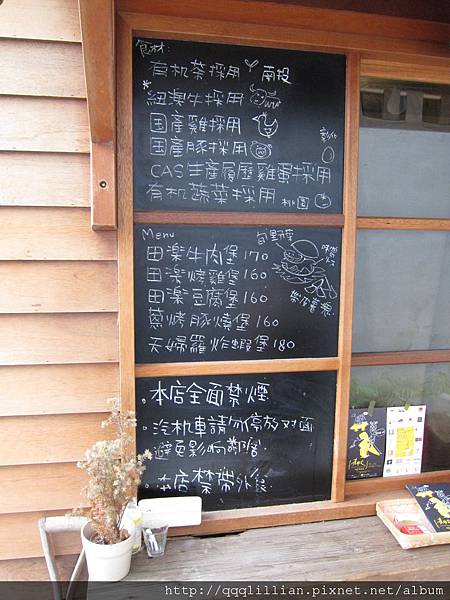 食材:
有机茶採用 南投
*紐澳牛採用
国產雞採用
国產豚採用
彰化
CAS生產履歷雞蛋採用
有机蔬菜採用 桃園
Menu
田楽牛肉堡 170
田楽烤雞堡 160
田楽豆腐堡 160
蔥烤豚燒堡 160
天婦羅炸蝦堡 180
·本店全面禁煙
·汽机車請勿停放对面
避免影响鄰居
·本店禁帶外食
http://qqqlillian.pixnet.net/album